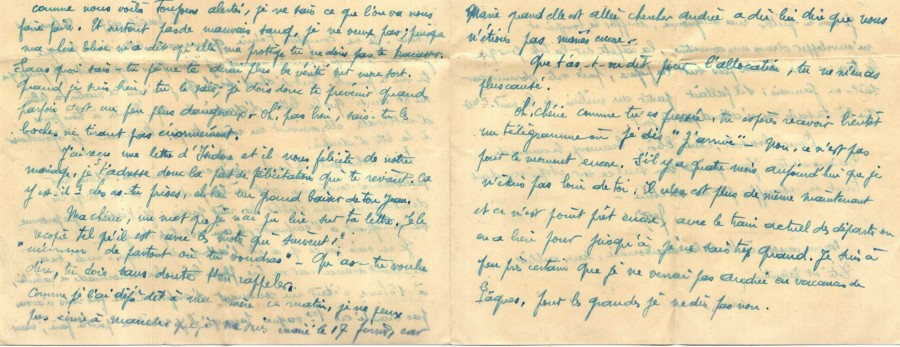 comme nous voilà toujours alertés, je ne sais ce que l'on va nous
faire faire. Et surtout pas de mauvais sang, je ne veux pas; puisque
ma chérie Elise m'a dit qu'elle me protège tu ne dois pas te tracasser.
Sans quoi sais-tu je ne te dirai plus la vérité sur mon sort.
Quand je suis bien, tu le sais, je dois donc te prévenir quand
parfois c'est un peu plus dangereux. Oh, pas bien, sais-tu les
boches ne tirant pas énormément.
J'ai reçu une lettre d'Isidore et il nous félicite de notre
mariage, je t'adresse donc la part de félicitations qui te revient. Ca
y est-il les as-tu prises, eh bien un grand baiser de ton Jean.
Ma chérie, un mot que je n'ai pu lire sur ta lettre. Je le
recopie tel qu'il est avec les mots qui suivent:
de partout où tu voudras" - Qu'as-tu voulu
dire, tu dois sans doute t'en rappeler.
Comme je l'ai déjà dit à ma mère ce matin, je ne peux
pas écrire à que je me suis marié le 17 février, car
Marie quand elle est allée chercher Andrée a dû lui dire que nous
n'étions pas mariés encore.
Que t'as-t-on dit pour l'allocation, tu ne m'en as
plus causé.
Oh! chérie comme tu es pressée, tu espères recevoir bientôt
un télégramme où je dis "J'arrive" - non, ce n'est pas
pour le moment encore. S'il y a quatre mois aujourd'hui que je
n'étais pas loin de toi, il n'en est plus de même maintenant
et ce n'est point prêt encore, avec le train actuel des départs on
en a bien pour jusqu'à je ne sais trop quand. Je suis à
peu près certain que je ne verrai pas Andrée en vacances de
Pâques, pour les grandes je ne dis pas non.